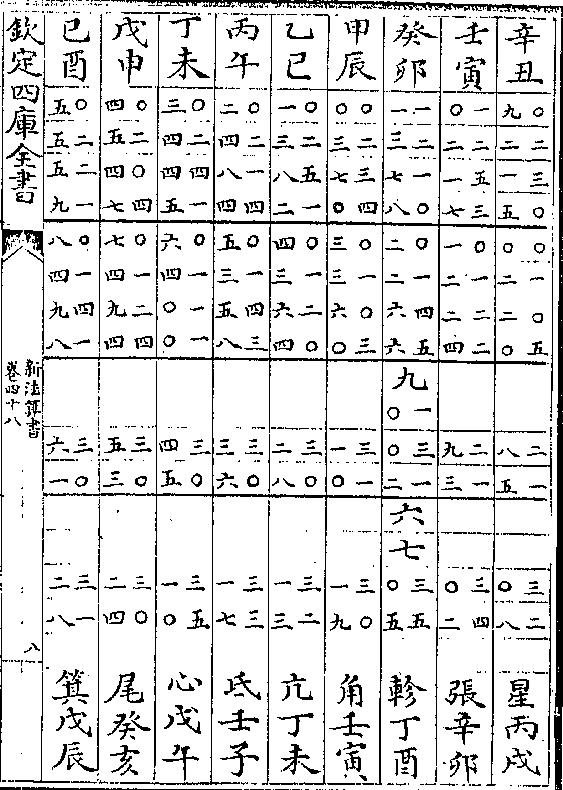 辛丑 〇九 二二 三一 〇五 〇〇 一二 〇二 五〇 二八 一五 三〇 二八 星丙戌
壬寅 一〇 二二 五一 三七 〇一 一二 二二 二四 二九 一三 三〇 四二 張辛卯
癸卯 一一 二三 一七 〇八 〇二 一二 四六 五六 九 一〇 三〇 一二 六 七 三〇 五五 軫丁酉
甲辰 〇〇 二三 三七 四〇 〇三 一三 〇六 三〇 三一 一〇 三一 〇九 角壬寅
乙巳 〇一 二三 五八 一二 〇四 一三 二六 〇四 三二 〇八 三一 二三 亢丁未
丙午 〇二 二四 一八 四四 〇五 一三 四五 三八 三三 〇六 三一 三七 氐壬子
丁未 〇三 二四 四四 一五 〇六 一四 一〇 一〇 三四 〇五 三一 五〇 心戊午
戊申 〇四 二五 〇四 四七 〇七 一四 二九 四四 三五 〇三 三二 〇四 尾癸亥
己酉 〇五 二五 二五 一九 〇八 一四 四九 一八 三六 〇一 三二 一八 箕戊辰
欽定四庫全書
新法算書
卷四十八
八